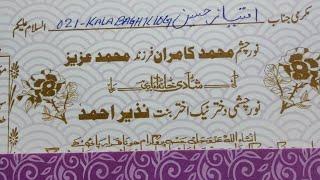 مکرمی جناب امتیاز حسین 021-KALABAGH السلام علیکم
نور چشم محمد کامران فرزند محمد عزیز
شادی خانہ آبادی
نور چشمی دختر نیک اختر بنت نذیر احمد
انشاء اللہ